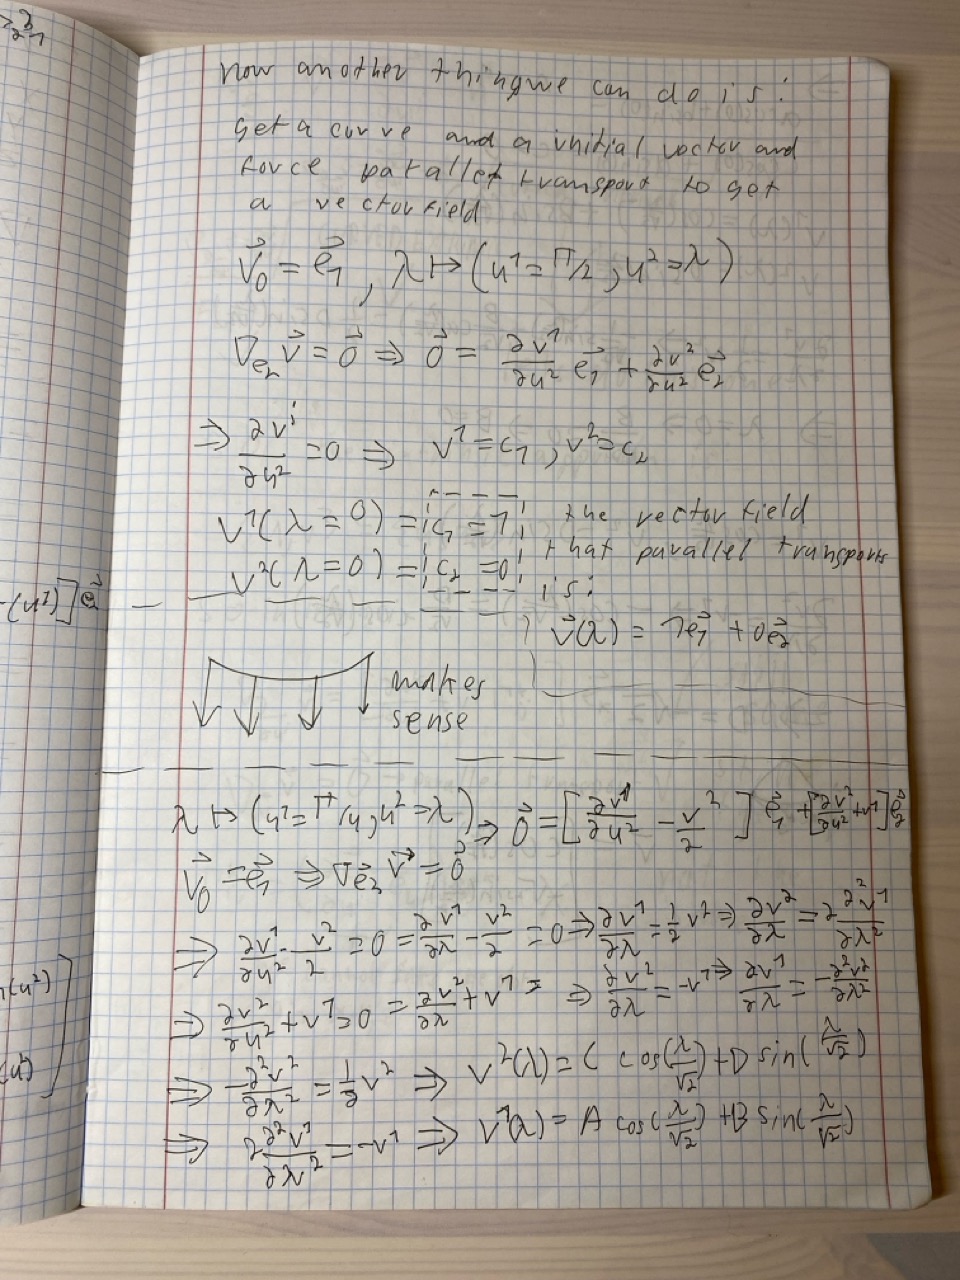 now another thing we can do is:
get a curve and a initial vector and
force parallel transport to get
a vector field
v⃗₀ = e⃗₁ , λ ↦ (u¹ = π/2 ; u² = λ)
∇e₂ v⃗ = 0⃗ ⇒ 0⃗ = ∂v¹/∂u² e⃗₁ + ∂v²/∂u² e⃗₂
⇒ ∂vⁱ/∂u² = 0 ⇒ v¹ = c₁ , v² = c₂
v¹(λ = 0) = c₁ = 1 the vector field
v²(λ = 0) = c₂ = 0 that parallel transports
is:
v⃗(λ) = 1e⃗₁ + 0e⃗₂
makes
sense
λ ↦ (u¹ = π/4, u² = λ) ⇒ 0⃗ = [∂v¹/∂u² - v²/2] e⃗₁ + [∂v²/∂u² + v¹] e⃗₂
v⃗₀ = e⃗₁ ⇒ ∇e⃗₂ v⃗ = 0⃗
⇒ ∂v¹/∂u² - v²/2 = 0 = ∂v¹/∂λ - v²/2 = 0 ⇒ ∂v¹/∂λ = 1/2 v² ⇒ ∂v²/∂λ = 2 ∂²v¹/∂λ²
⇒ ∂v²/∂u² + v¹ = 0 = ∂v²/∂λ + v¹ = ⇒ ∂v²/∂λ = -v¹ ⇒ ∂v¹/∂λ = -∂²v²/∂λ²
⇒ -∂²v²/∂λ² = 1/2 v² ⇒ v²(λ) = C cos(λ/√2) + D sin(λ/√2)
⇒ 2 ∂²v¹/∂λ² = -v¹ ⇒ v¹(λ) = A cos(λ/√2) + B sin(λ/√2)